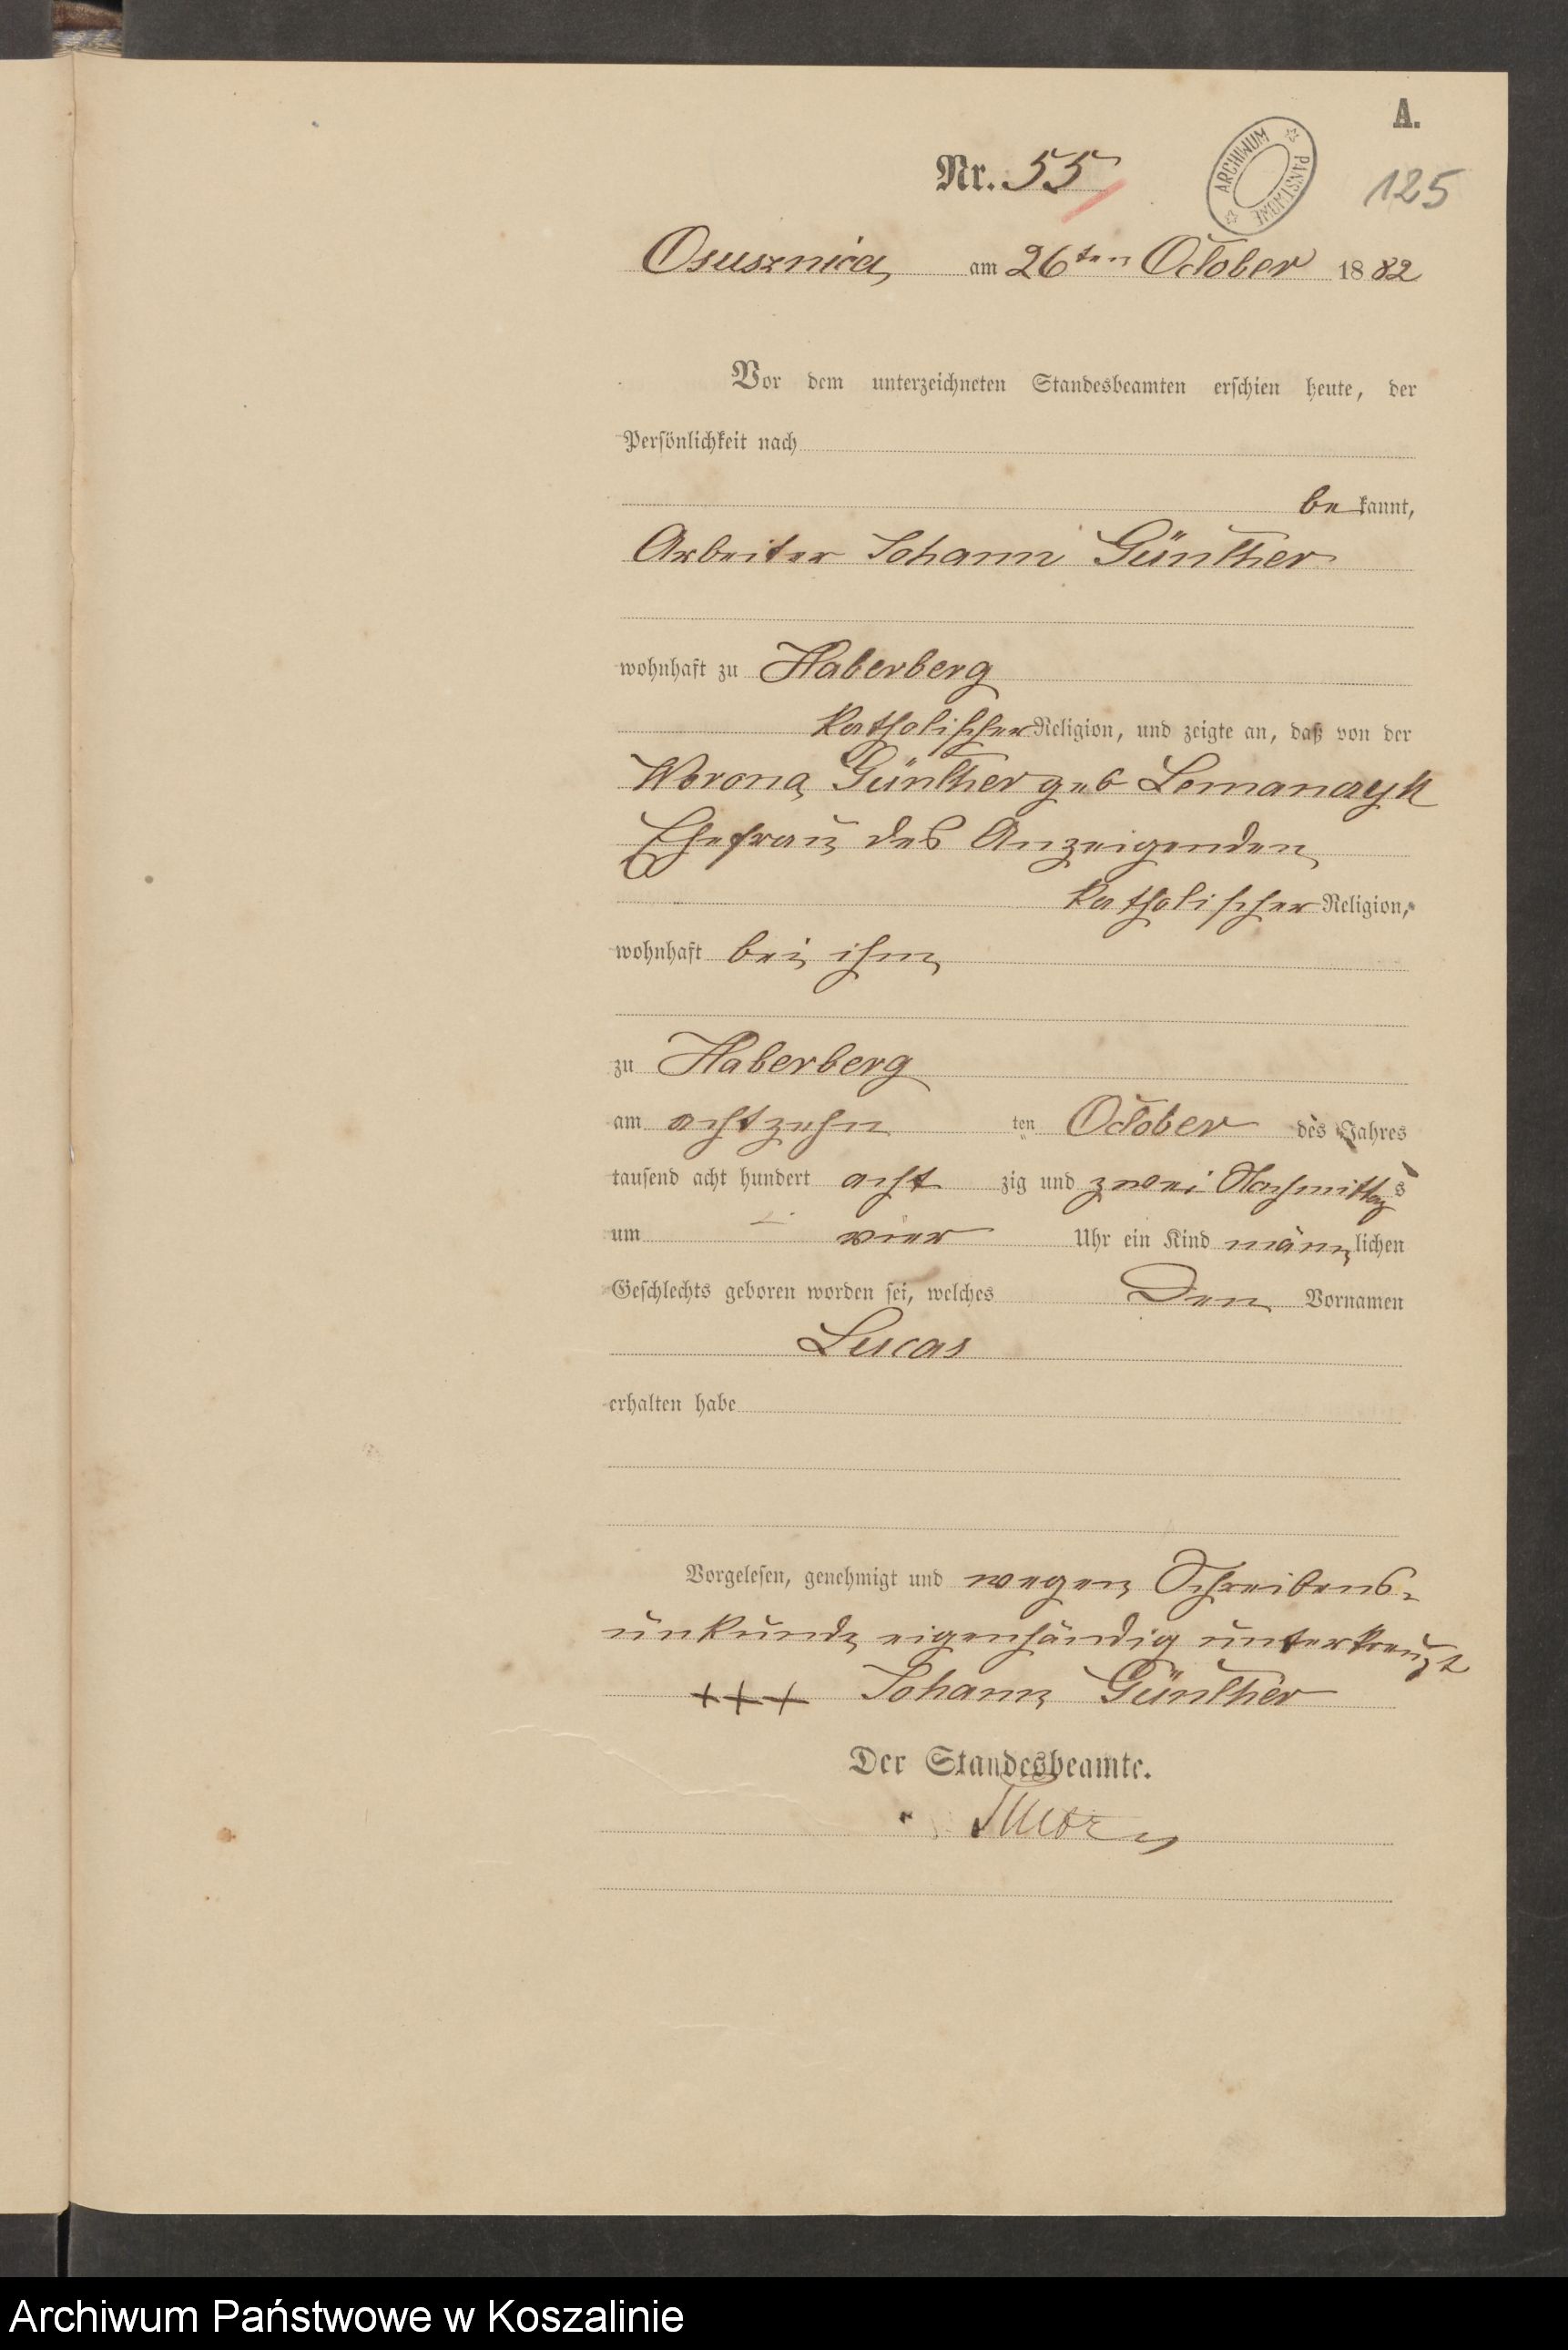 A.
Nr. 55
ARCHIWUM PAŃSTWOWE
125
Osusznica am 26ten October 1882
Vor dem unterzeichneten Standesbeamten erschien heute, der
Persönlichkeit nach
be kannt,
Arbeiter Johann Günther
wohnhaft zu Haberberg
katholischer Religion, und zeigte an, daß von der
Werona Günther geb Lemanczyk
Ehefrau des Anzeigenden
katholischer Religion,
wohnhaft bei ihm
zu Haberberg
am achtzehn ten October des Jahres
tausend acht hundert acht zig und zwei Nachmittags
um vier Uhr ein Kind männlichen
Geschlechts geboren worden sei, welches den Vornamen
Lucas
erhalten habe
Vorgelesen, genehmigt und wegen Schreibens-
unkunde eigenhändig unterkreuzt
+++ Johann Günther
Der Standesbeamte.
Archiwum Państwowe w Koszalinie